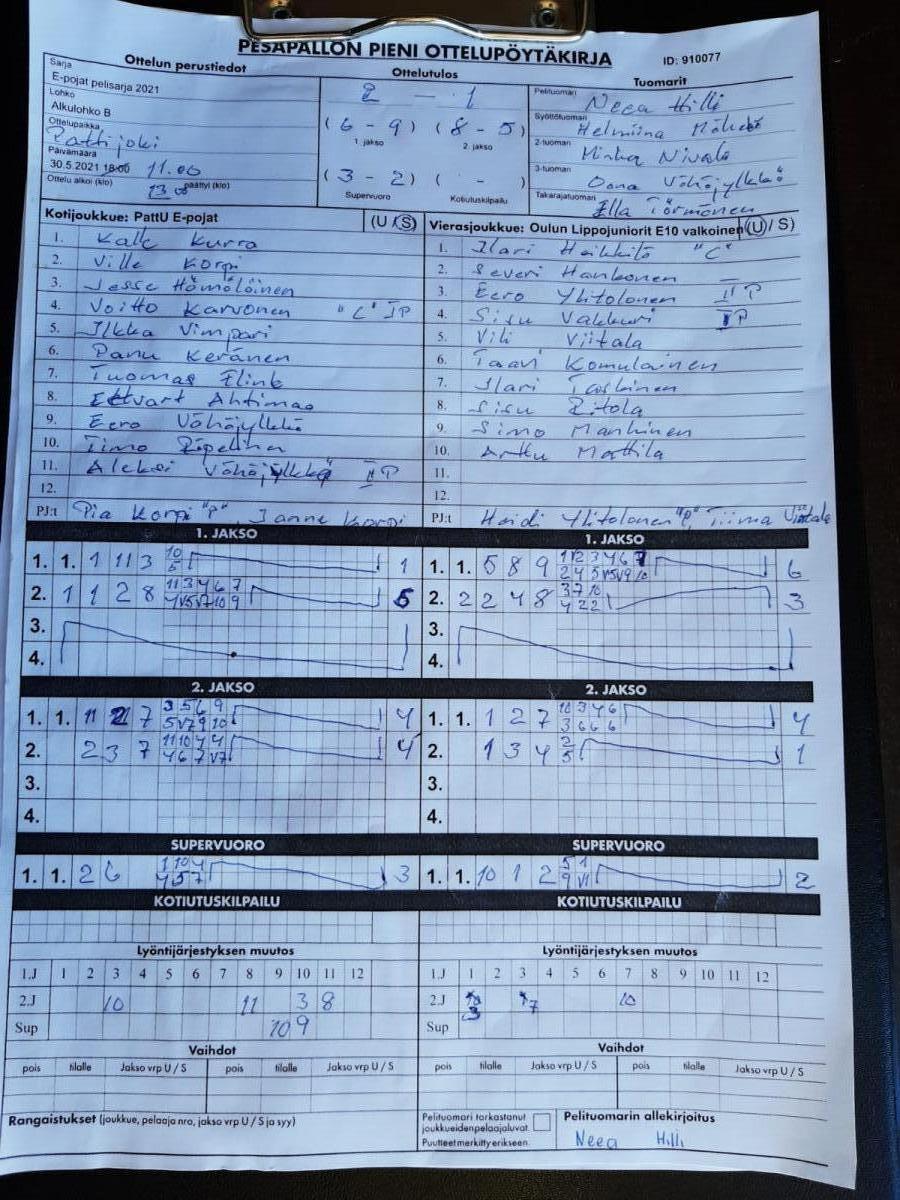 PESÄPALLON PIENI OTTELUPÖYTÄKIRJA
ID: 910077
Ottelun perustiedot
Sarja
E-pojat pelisarja 2021
Lohko
Alkulohko B
Ottelupaikka
Pattijoki
Päivämäärä
30.5.2021 18:00 11.00
Ottelu alkoi (klo) päättyi (klo)
13
Ottelutulos
2 - 1
(6 - 9) (8 - 5)
1. jakso 2. jakso
(3 - 2) ( - )
Supervuoro Kotiutuskilpailu
Tuomarit
Pelituomari Neea Hilli
Syöttötuomari Helmiina
2-tuoman Minka Nivala
3-tuoman Oona Vähäjylkkä
Takarajatuomari Ella Törmänen
Kotijoukkue: PattU E-pojat (U / S)
1. Kalle Kurra
2. Ville Korpi
3. Jesse Hömöläinen
4. Voitto Karvonen "C" IP
5. Ilkka Vimpari
6. Panu Keränen
7. Tuomas Flink
8. Eetvart Ahtimaa
9. Eero Vähäjylkkä
10. Timo
11. Aleksi Vähäjylkkä II P
12.
PJ:t Pia Korpi "P", Janne Korpi
Vierasjoukkue: Oulun Lippojuniorit E10 valkoinen (U / S)
1. Ilari Heikkilä "C"
2. Severi Hankonen
3. Eero Ylitolonen II P
4. Sisu Vakkuri I P
5. Vili Viitala
6. Taavi Komulainen
7. Ilari Taskinen
8. Sisu Ritola
9. Simo Manninen
10. Arttu Mattila
11.
12.
PJ:t Heidi Ylitolonen Tiima
1. JAKSO
1. 1. 1 11 3 10 1
5
2. 1 1 2 8 11 3 4 6 7 5
4 v5 v7 10 9
3.
4.
1. JAKSO
1. 1. 5 8 9 1 12 3 4 6 7 6
2 4 5 v5 v9 10
2. 2 2 4 8 3 7 10 3
4 2 2
3.
4.
2. JAKSO
1. 1. 11 2 7 3 5 6 9 4
5 v7 9 10
2. 2 3 7 11 10 4 4 4
4 6 7 v7
3.
4.
2. JAKSO
1. 1. 1 2 7 10 3 4 6 4
3 6 6 6
2. 1 3 4 2 1
5
3.
4.
SUPERVUORO
1. 1. 2 6 1 10 4 3
4 5 7
SUPERVUORO
1. 1. 10 1 2 5 1 2
9 v1
KOTIUTUSKILPAILU
KOTIUTUSKILPAILU
Lyöntijärjestyksen muutos
1.J 1 2 3 4 5 6 7 8 9 10 11 12
2.J 10 11 3 8
Sup 10 9
Vaihdot
pois tilalle Jakso vrp U / S pois tilalle Jakso vrp U / S
Lyöntijärjestyksen muutos
1.J 1 2 3 4 5 6 7 8 9 10 11 12
2.J 3 7 10
Sup
Vaihdot
pois tilalle Jakso vrp U / S pois tilalle Jakso vrp U / S
Rangaistukset (joukkue, pelaaja nro, jakso vrp U / S ja syy)
Pelituomari tarkastanut
joukkueidenpelaajaluvat.
Puutteet merkitty erikseen.
Pelituomarin allekirjoitus
Neea Hilli